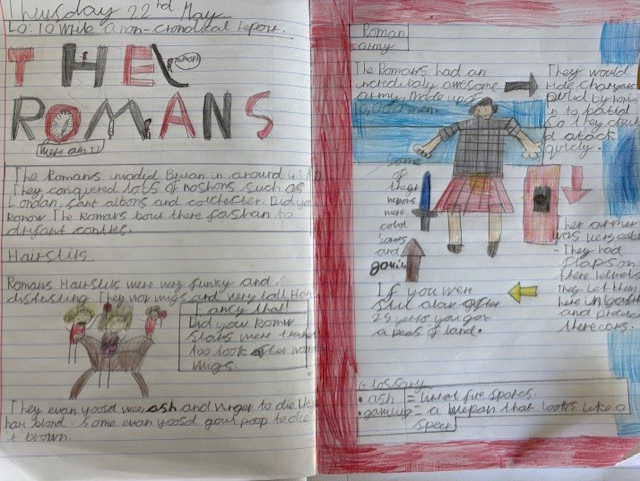 Thursday 22nd May
Lo: To write a non-crondical report.
THE
ROMANS
The Romans invaded Britan in around
They conquered lots of noshons such as
London, sant albons and colchester. Did you
know The Romans bout there fashan to
difrant contres.
Hairstils
Romans Hairstils were very funky and
distusting. They wor wigs and very tall
Fancy that!
Did you know
slavs were traned
too look after women
wigs.
They evan yoosd wee, ash and vinger to die
hair blond. Some evan yoosd gout poop to die
it brown.
Roman
army
The Romans had an
incredibly awesome
army. Made up of
They would
ride charyers
puld by
in to battal
so they could
attack
quickly.
Some
of there
wepons
were
cold
sords
and
If you were
still alav after
25 years you got
a pees of land.
was very
They had
flaps on
there helmets
they let them
here
and protect
there ears.
Glossary
• ash = what fire
= a wepan that looks like a
spear